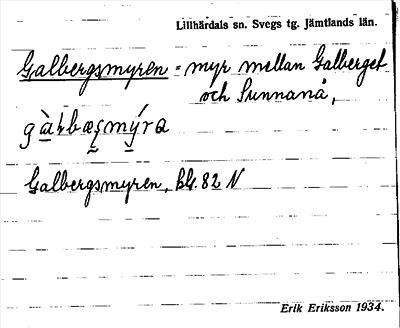 Lillhärdals sn. Svegs tg. Jämtlands län.
Galbergsmyren = myr mellan Galberget
och Sunnanå,
Galbergsmyren, bl. 82 N
Erik Eriksson 1934.